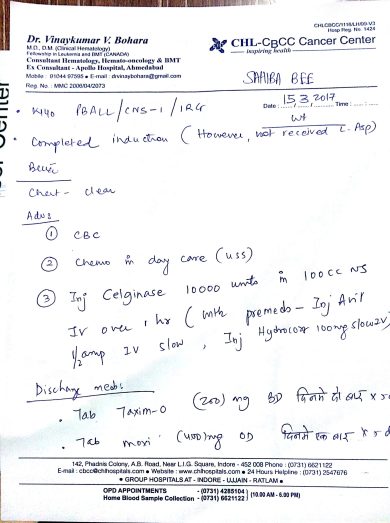 CHLCBCC/1118/LH/09-V3
Hosp Reg. No. 1424
Dr. Vinaykumar V. Bohara
M.D., D.M. (Clinical Hematology)
Fellowship in Leukemia and BMT (CANADA)
Consultant Hematology, Hemato-oncology & BMT
Ex Consultant - Apollo Hospital, Ahmedabad
Mobile : 91044 97595 • E-mail : drvinaybohara@gmail.com
Reg. No : MMC 2006/04/2073
CHL-CBCC Cancer Center
inspiring health
SAHIBA BEE
Date : 15.3.2017 Time :
Wt
• K/40 PBALL/CNS-1/IRG
• Completed induction (However, not received L-Asp)
Chest - clear
Adv:
① CBC
② Chemo in day care (USS)
③ Inj Celginase 10000 units in 100CC NS
IV over 1 hr (with premeds - Inj Avil
1/2 amp IV slow, Inj Hydrocort 100mg slow IV)
Discharge meds:
• Tab Taxim-O (200) mg BD दिनमे दो बार x 5
• Tab (400) mg OD दिनमे एक बार x 5 d
142, Phadnis Colony, A.B. Road, Near L.I.G. Square, Indore - 452 008 Phone : (0731) 6621122
E-mail : cbcc@chlhospitals.com • Website : www.chlhospitals.com • 24 Hours Helpline : (0731) 2547676
• GROUP HOSPITALS AT - INDORE - UJJAIN - RATLAM •
OPD APPOINTMENTS - (0731) 4285104
Home Blood Sample Collection - (0731) 6621122 (10.00 AM - 6.00 PM)